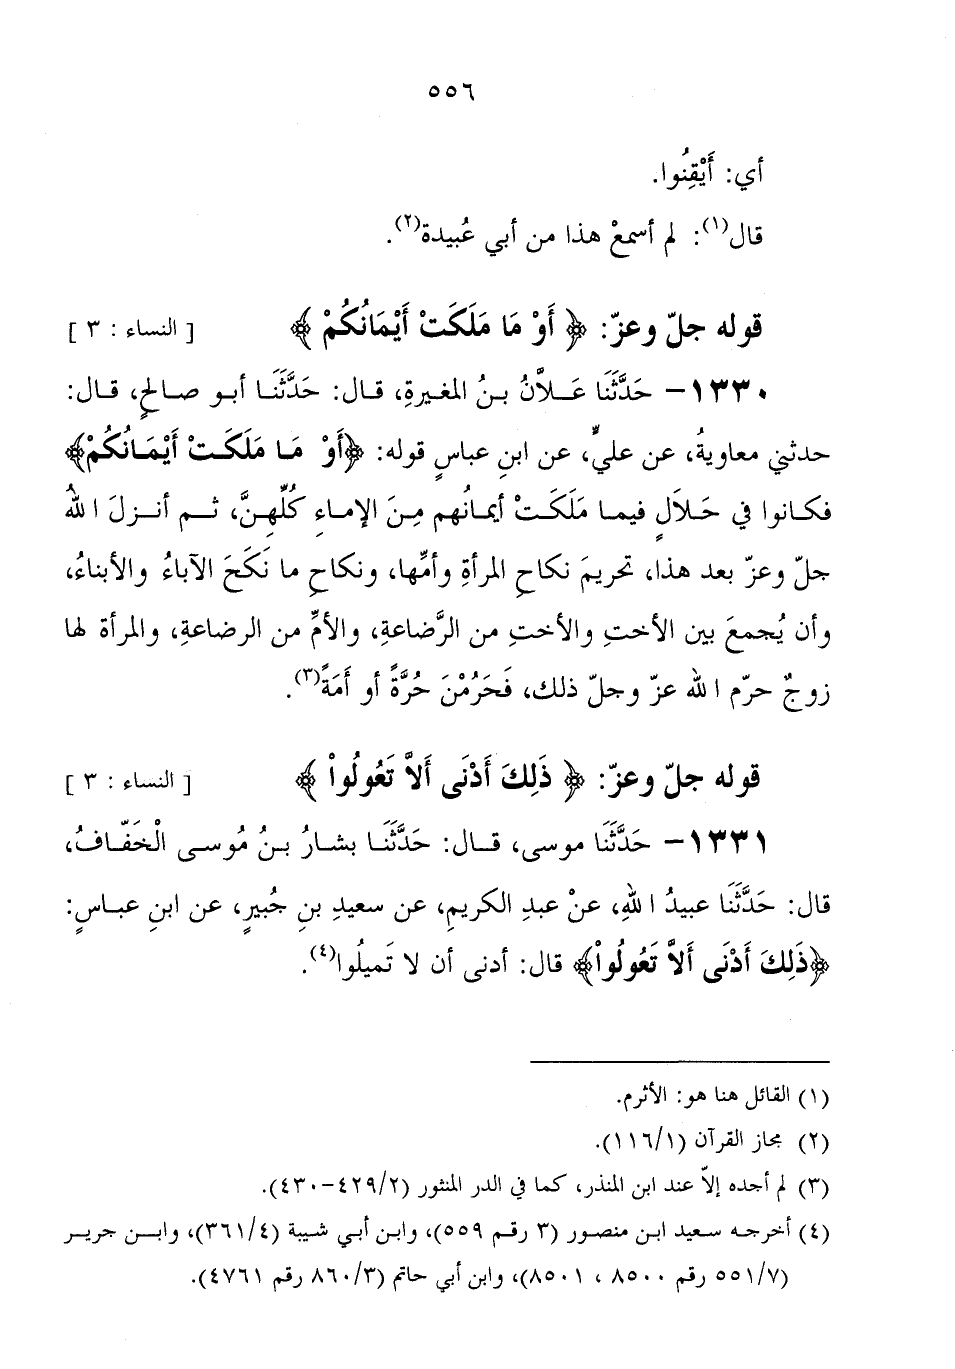 ٥٥٦
أي: أَيْقِنُوا.
قال(١): لم أسمعْ هذا من أبي عُبيدة(٢).
قوله جلّ وعزّ: ﴿ أَوْ مَا مَلَكَتْ أَيْمَانُكُمْ ﴾ [ النساء : ٣ ]
١٣٣٠- حَدَّثَنَا عَلاَّن بنُ المغيرةِ، قال: حَدَّثَنَا أبو صالحٍ، قال:
حدثني معاويةُ، عن عليٍّ، عن ابنِ عباسٍ قوله: ﴿أَوْ مَا مَلَكَتْ أَيْمَانُكُمْ﴾
فكانوا في حَلاَلٍ فيما مَلَكَتْ أيمانُهم مِنَ الإماءِ كُلِّهِنَّ، ثم أنزلَ اللهُ
جلّ وعزّ بعد هذا، تحريمَ نكاحِ المرأةِ وأمِّها، ونكاحِ ما نَكَحَ الآباءُ والأبناءُ،
وأن يُجمعَ بين الأختِ والأختِ من الرَّضاعةِ، والأمِّ من الرضاعةِ، والمرأة لها
زوجٌ حرّم الله عزّ وجلّ ذلك، فَحَرُمْنَ حُرَّةً أو أَمَةً(٣).
قوله جلّ وعزّ: ﴿ ذَلِكَ أَدْنَى أَلاَّ تَعُولُواْ ﴾ [ النساء : ٣ ]
١٣٣١- حَدَّثَنَا موسى، قال: حَدَّثَنَا بشارُ بنُ مُوسى الْخَفّافُ،
قال: حَدَّثَنَا عبيدُ اللهِ، عنْ عبدِ الكريمِ، عن سعيدِ بنِ جُبيرٍ، عن ابنِ عباسٍ:
﴿ذَلِكَ أَدْنَى أَلاَّ تَعُولُواْ﴾ قال: أدنى أن لا تَميلُوا(٤).
(١) القائل هنا هو: الأثرم.
(٢) مجاز القرآن (١١٦/١).
(٣) لم أجده إلاّ عند ابن المنذر، كما في الدر المنثور (٤٢٩/٢-٤٣٠).
(٤) أخرجه سعيد ابن منصور (٣ رقم ٥٥٩)، وابن أبي شيبة (٣٦١/٤)، وابن جرير
(٥٥١/٧ رقم ٨٥٠٠ ، ٨٥٠١)، وابن أبي حاتم (٨٦٠/٣ رقم ٤٧٦١).